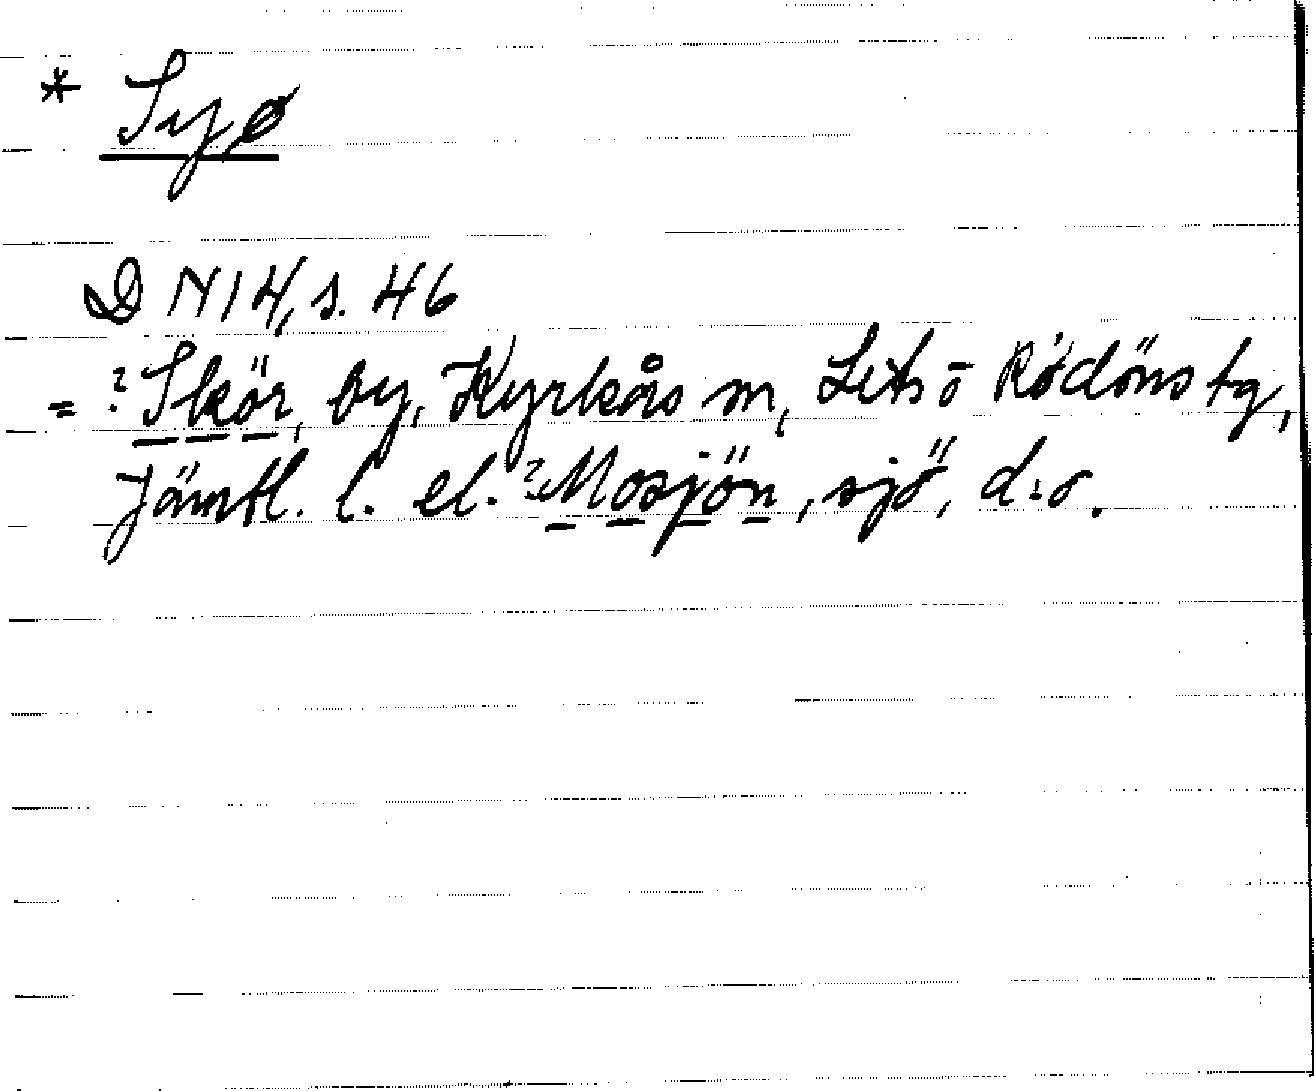 * Syø
DN 14, s. 46
= ?Skör, by, Kyrkås sn, Lits o Rödöns tg,
Jämtl. l. el. ?Mosjön, sjö, d:o.